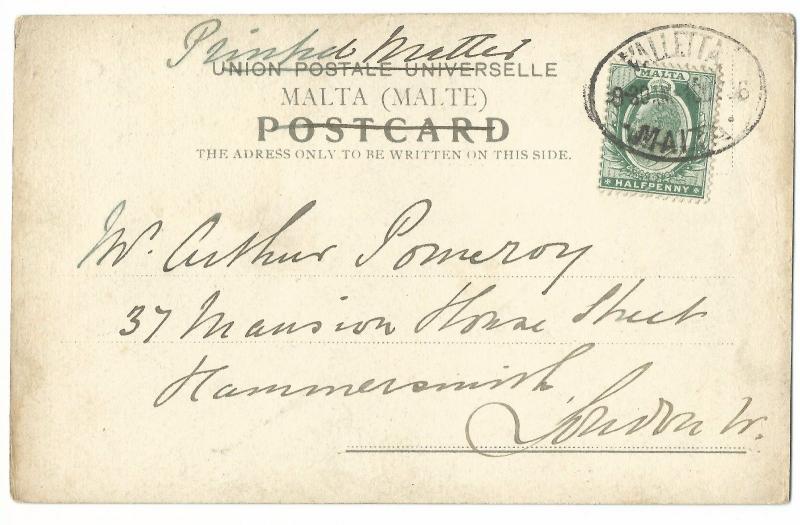 Printed Matter
UNION POSTALE UNIVERSELLE
MALTA (MALTE)
POSTCARD
THE ADRESS ONLY TO BE WRITTEN ON THIS SIDE.
VALLETTA
MALTA
MALTA
HALFPENNY
Mr. Arthur Pomeroy
37 Mansion House Street
Hammersmith
London W.